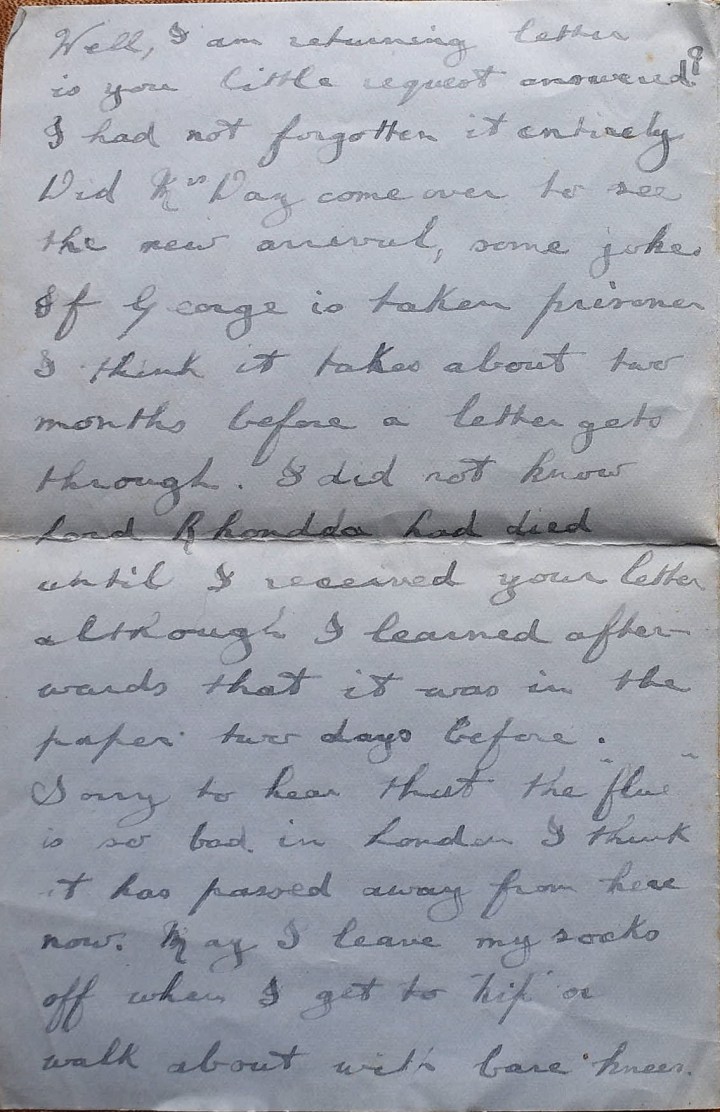 Well, I am returning letter
is you little request answered?
I had not forgotten it entirely
Did Mrs Day come over to see
the new arrival, some joke.
If George is taken prisoner
I think it takes about two
months before a letter gets
through. I did not know
Lord Rhondda had died
until I received your letter
although I learned after-
wards that it was in the
paper two days before.
Sorry to hear that the "flue"
is so bad in London I think
it has passed away from here
now. May I leave my socks
off when I get to "kip" or
walk about with bare knees.